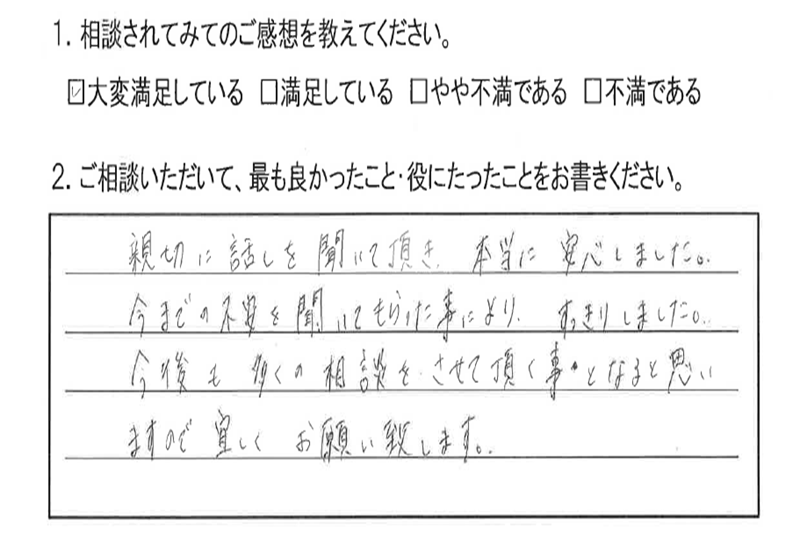 1. 相談されてみてのご感想を教えてください。
☑大変満足している □満足している □やや不満である □不満である
2. ご相談いただいて、最も良かったこと・役にたったことをお書きください。
親切に話しを聞いて頂き、本当に安心しました。
今までの不安を聞いてもらった事により、すっきりしました。
今後も多くの相談をさせて頂く事となると思い
ますので宜しくお願い致します。